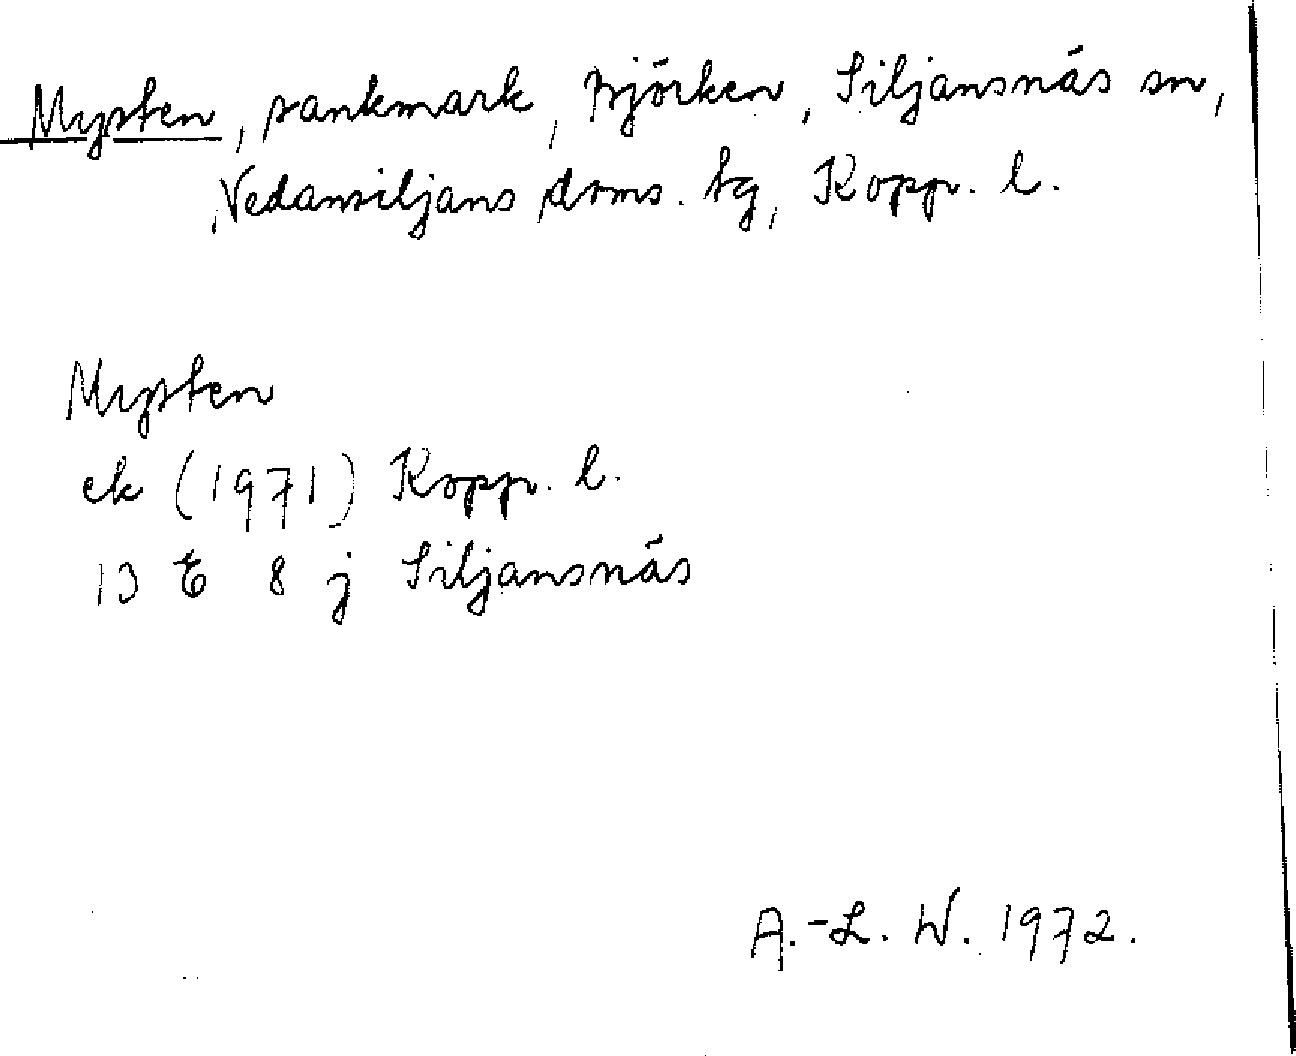 Mysten, sankmark, Björken, Siljansnäs sn,
Nedansiljans doms. tg, Kopp. l.
Mysten
ek (1971) Kopp. l.
13 E 8 j Siljansnäs
A.-L. W. 1972.